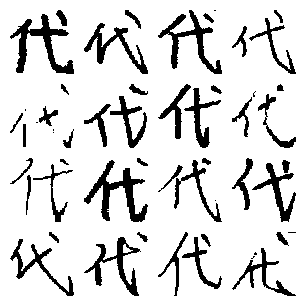 代代代代
代代代代
代代代代
代代代代